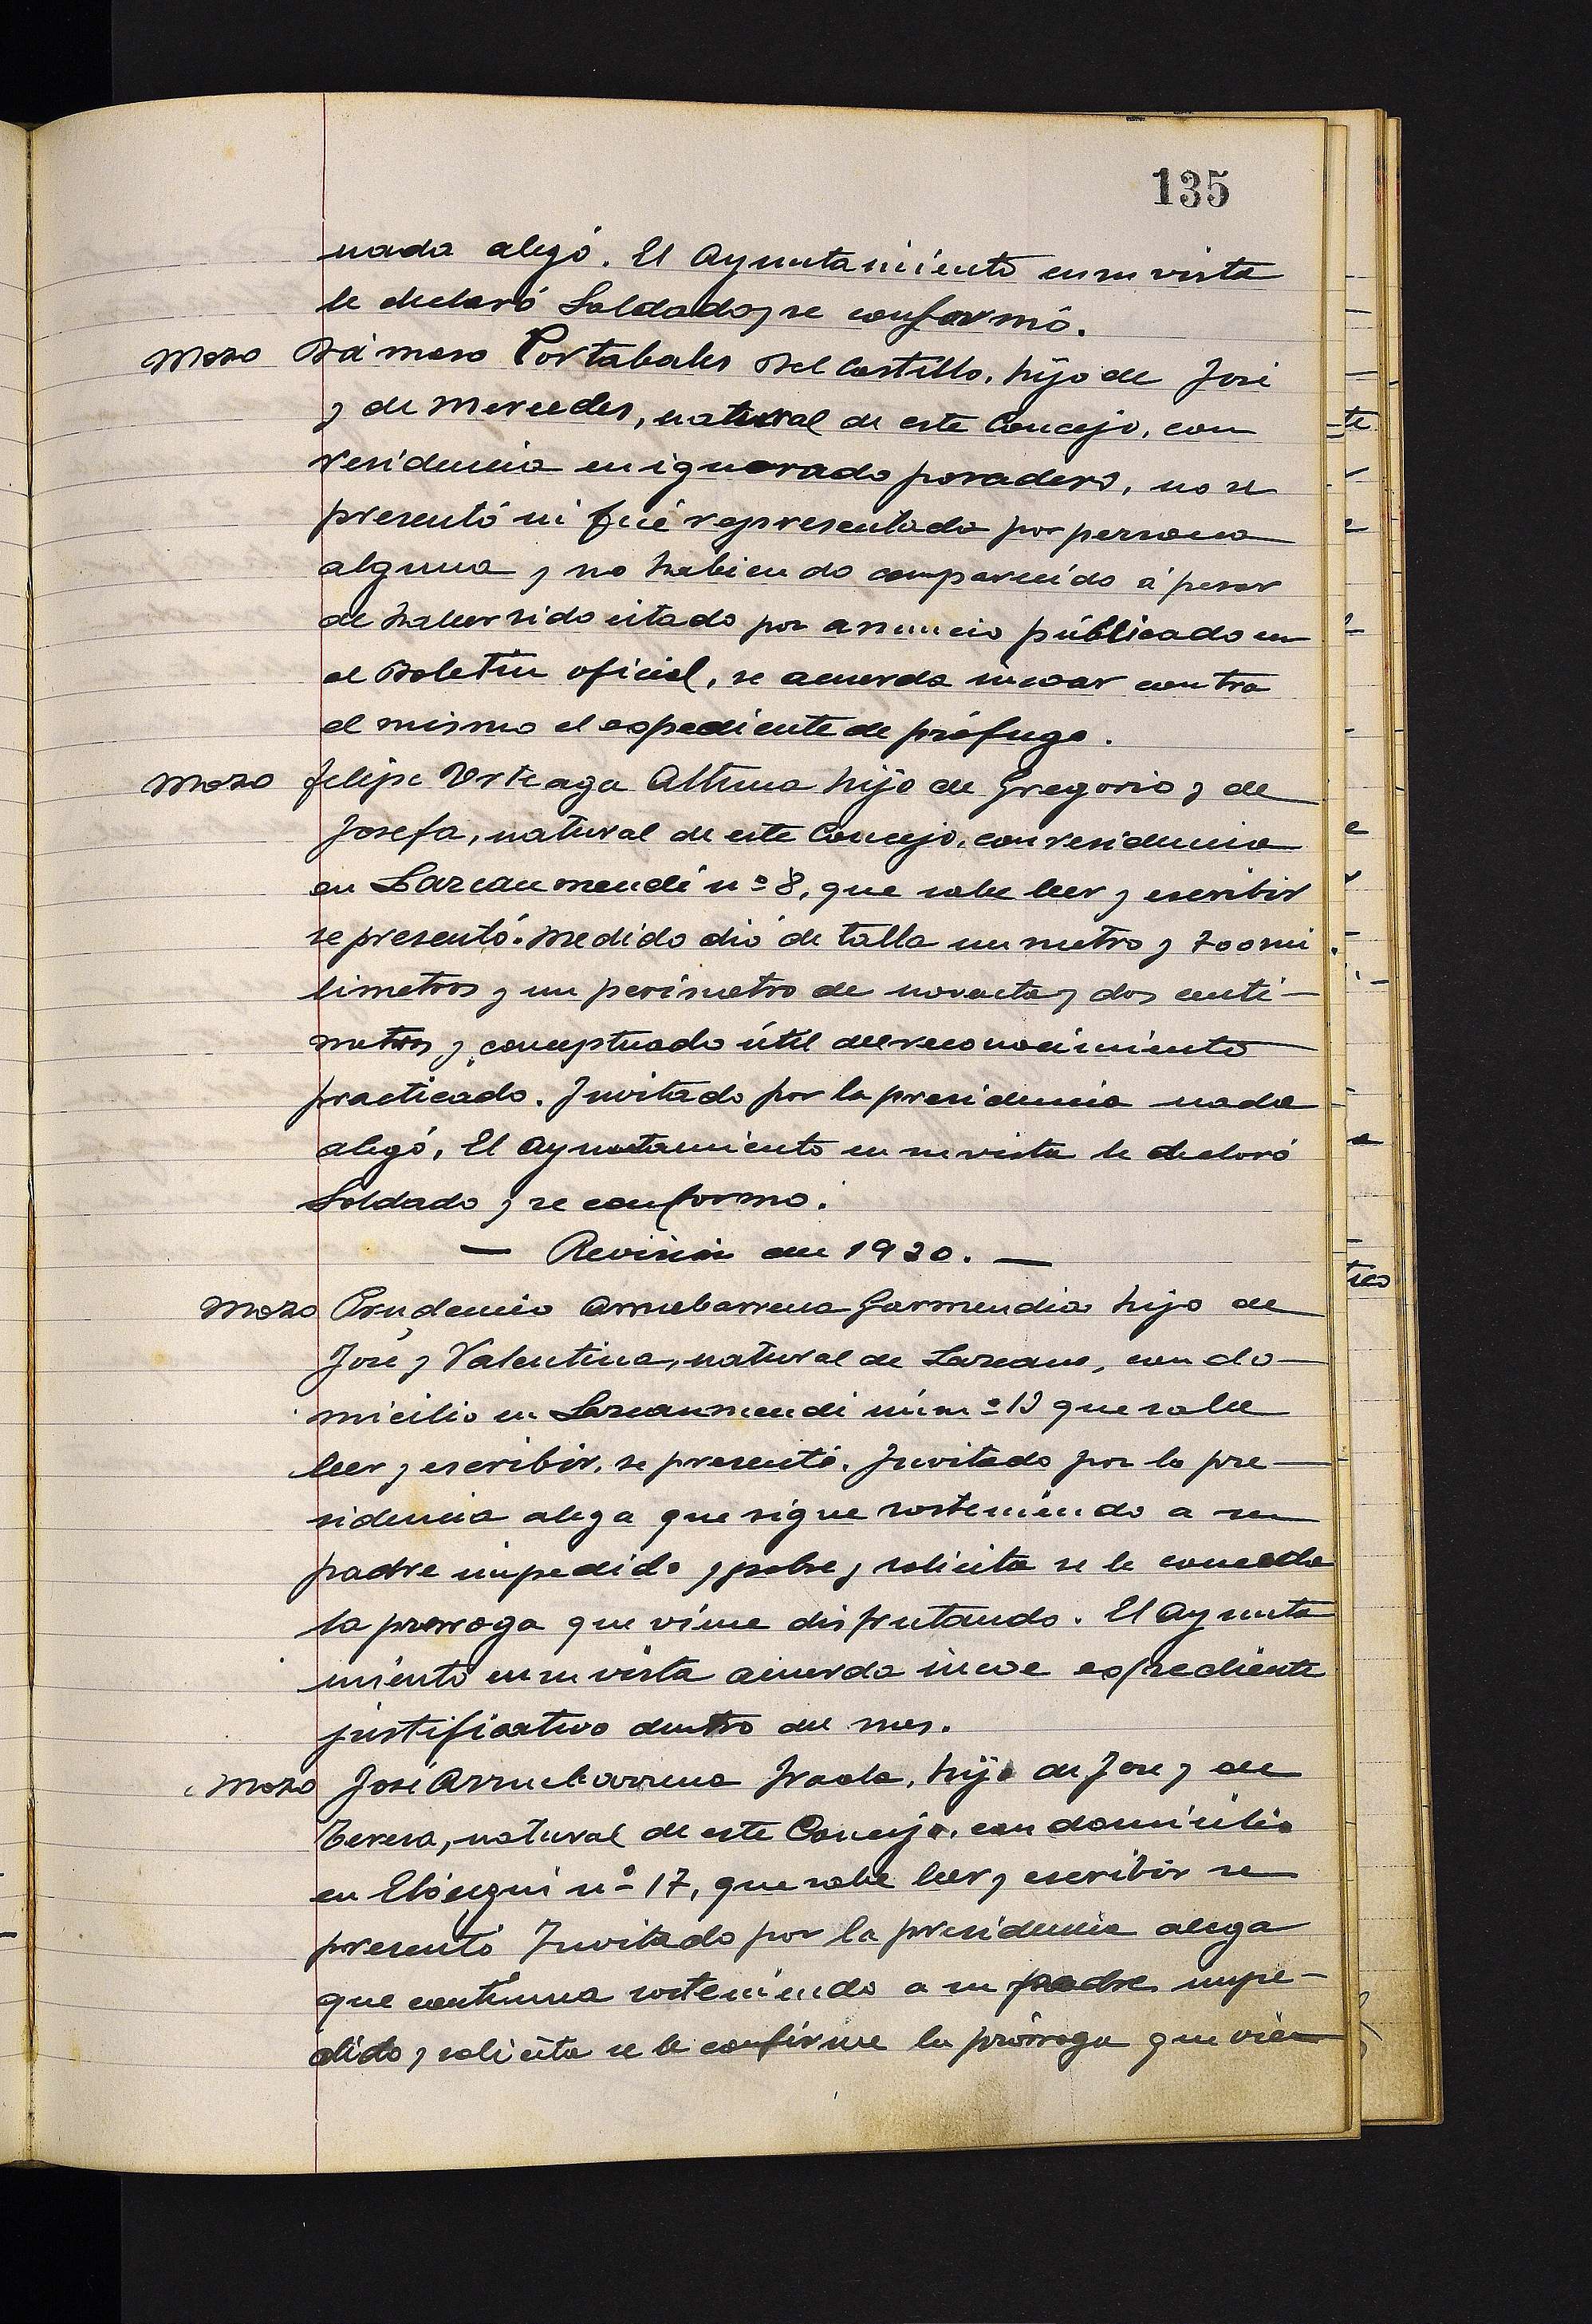 135
nada alegó. El Ayuntamiento en su vista
le declaró Soldado y se conformó.
Mozo Dámaso Portabales Del Castillo, hijo de José
y de Mercedes, natural de este Concejo, con
residencia en ignorado paradero, no se
presentó ni fué representado por persona
alguna y no habiendo comparecido á pesar
de haber sido citado por anuncio públicado en
el Boletin oficial, se acuerda incoar contra
el mismo el espediente de prófugo.
Mozo Felipe Urteaga Altuna hijo de Gregorio y de
Josefa, natural de este Concejo, con residencia
en Lazcanomendi nº 8, que sabe leer y escribir
se presentó. Medido dió de talla un metro y 700 mi
limetros y un perímetro de novecta y dos centi-
metros y conceptuado útil del reconocimiento
practicado. Invitado por la presidencia nada
alegó, El Ayuntamiento en su vista le declaró
Soldado y se conformo.
— Revisión de 1930. —
Mozo Prudencio Arruebarrena Garmendia hijo de
José y Valentina, natural de Lazcano, con do-
micilio en Lazcanomendi núm º 13 que sabe
leer y escribir, se presentó. Invitado por la pre-
sidencia alega que sigue sosteniendo a su
padre impedido y pobre y solicita se le conceda
la prorroga que viene disfrutando. El Ayunta
miento en su vista acuerda incoe espediente
justificativo dentro del mes.
Mozo José Arruebarrena hijo de Jose y de
Teresa, natural de este Concejo, con domicilio
en nº 17, que sabe leer y escribir se
presentó Invitado por la presidencia alega
que continua sosteniendo a su padre impe-
dido y solicita se le confirme la prórroga que vien